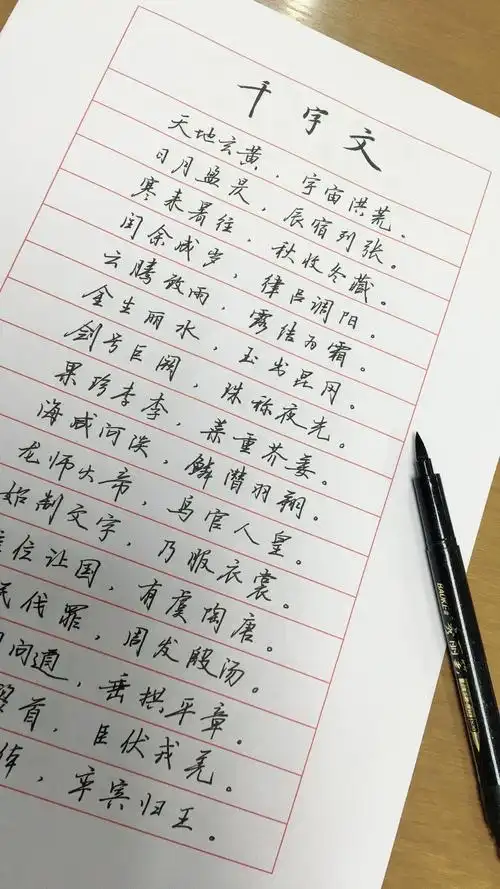 千字文
天地玄黄，宇宙洪荒。
日月盈昃，辰宿列张。
寒来暑往，秋收冬藏。
闰余成岁，律吕调阳。
云腾致雨，露结为霜。
金生丽水，玉出昆冈。
剑号巨阙，珠称夜光。
果珍李李，菜重芥姜。
海咸河淡，鳞潜羽翔。
龙师火帝，鸟官人皇。
始制文字，乃服衣裳。
位让国，有虞陶唐。
民伐罪，周发殷汤。
问道，垂拱平章。
首，臣伏戎羌。
，率宾归王。